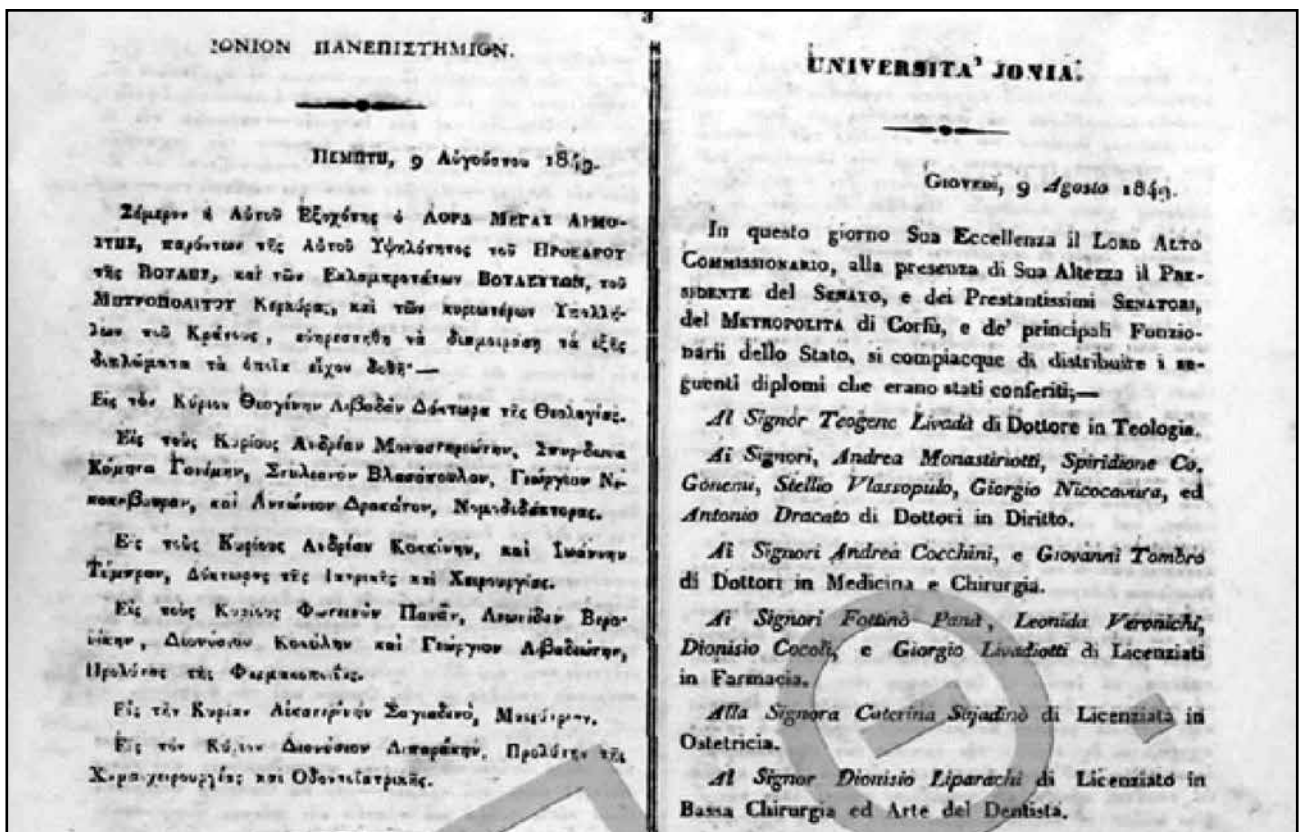 3
ΙΟΝΙΟΝ ΠΑΝΕΠΙΣΤΗΜΙΟΝ.
ΠΕΜΠΤΗ, 9 Αὐγούστου 1849.
Σήμερον ἡ Αὐτοῦ Ἐξοχότης ὁ ΛΟΡΔ ΜΕΓΑΣ ΑΡΜΟ-
ΣΤΗΣ, παρόντων τῆς Αὐτοῦ Ὑψηλότητος τοῦ ΠΡΟΕΔΡΟΥ
τῆς ΒΟΥΛΗΣ, καὶ τῶν Ἐκλαμπροτάτων ΒΟΥΛΕΥΤΩΝ, τοῦ
ΜΗΤΡΟΠΟΛΙΤΟΥ Κερκύρας, καὶ τῶν κυριωτέρων Ὑπαλλή-
λων τοῦ Κράτους, εὐηρεστήθη νὰ διαμοιράσῃ τὰ ἑξῆς
διπλώματα τὰ ὁποῖα εἶχον δοθῆ·—
Εἰς τὸν Κύριον Θεογένην Λιβαδᾶν Δόκτωρα τῆς Θεολογίας.
Εἰς τοὺς Κυρίους Ἀνδρέαν Μοναστηριώτην, Σπυρίδωνα
Κόμητα Γονέμην, Στυλιανὸν Βλασόπουλον, Γεώργιον Νι-
κοκάβουραν, καὶ Ἀντώνιον Δρακάτον, Νομοδιδάκτορας.
Εἰς τοὺς Κυρίους Ἀνδρέαν Κοκκίνην, καὶ Ἰωάννην
Τόμπρον, Δόκτωρας τῆς Ἰατρικῆς καὶ Χειρουργίας.
Εἰς τοὺς Κυρίους Φωτεινὸν Πανᾶν, Λεωνίδαν Βερο-
νίκην, Διονύσιον Κοκόλην καὶ Γεώργιον Λιβαδιώτην,
Προλύτας τῆς Φαρμακοποιΐας.
Εἰς τὴν Κυρίαν Αἰκατερίνην Σαγιαδινό, Μαιεύτριαν.
Εἰς τὸν Κύριον Διονύσιον Λιπαράκην, Προλύτην τῆς
καὶ Ὀδοντοϊατρικῆς.
UNIVERSITA' JONIA.
GIOVEDI, 9 Agosto 1849.
In questo giorno Sua Eccellenza il LORD ALTO
COMMISSIONARIO, alla presenza di Sua Altezza il PRE-
SIDENTE del SENATO, e dei Prestantissimi SENATORI,
del METROPOLITA di Corfù, e de' principali Funzio-
narii dello Stato, si compiacque di distribuire i se-
guenti diplomi che erano stati conferiti;—
Al Signor Teogene Livadà di Dottore in Teologia.
Ai Signori, Andrea Monastiriotti, Spiridione Co.
Gonemi, Stellio Vlassopulo, Giorgio Nicocavura, ed
Antonio Dracato di Dottori in Diritto.
Ai Signori Andrea Cocchini, e Giovanni Tombro
di Dottori in Medicina e Chirurgia.
Ai Signori Fottinò Panà, Leonida Veronichi,
Dionisio Cocoli, e Giorgio Livadiotti di Licenziati
in Farmacia.
Alla Signora Caterina Sajadinò di Licenziata in
Ostetricia.
Al Signor Dionisio Liparachi di Licenziato in
Bassa Chirurgia ed Arte del Dentista.